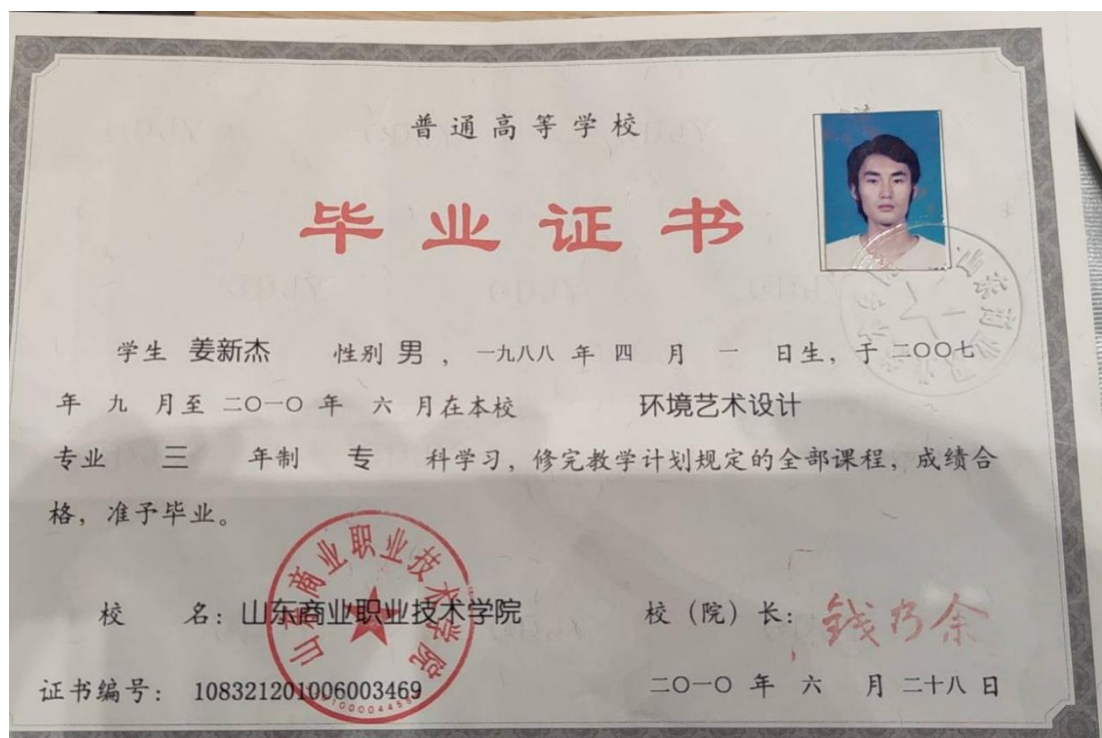 普通高等学校
毕业证书
学生 姜新杰 性别 男 ，一九八八 年 四 月 一 日生，于 二〇〇七
年 九 月至 二〇一〇 年 六 月在本校 环境艺术设计
专业 三 年制 专 科学习，修完教学计划规定的全部课程，成绩合
格，准予毕业。
山东商业职业技术学院
校 名：山东商业职业技术学院 校（院）长：钱乃余
证书编号：108321201006003469 二〇一〇 年 六 月 二十八 日